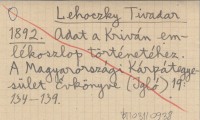 Lehoczky Tivadar
1892. Adat a Kriván em-
lékoszlop történetéhez.
A Magyarországi Kárpátegye-
sület Évkönyve (Igló) 19:
134-139.